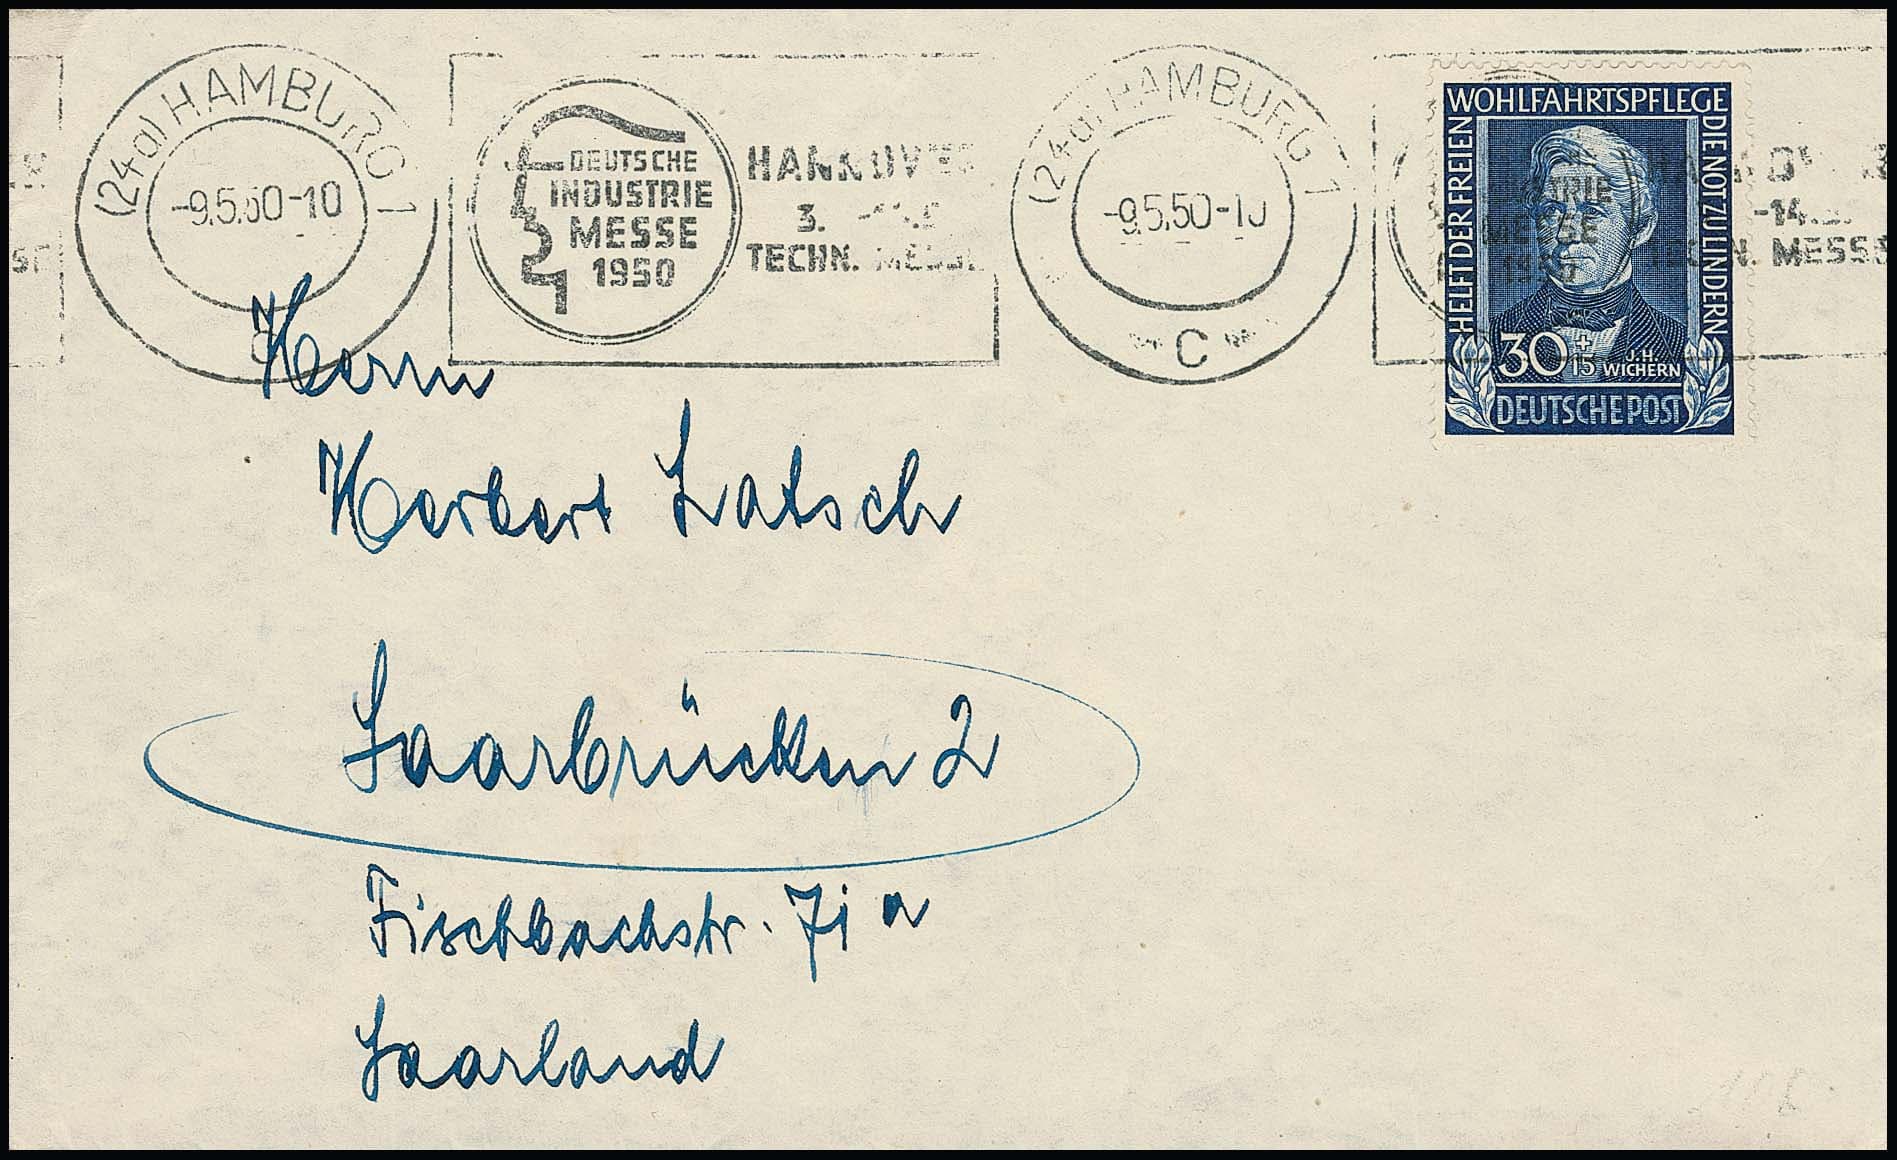 (24a) HAMBURG 1
-9.5.50-10
c
DEUTSCHE
INDUSTRIE
MESSE
1950
HANNOVER
3.
TECHN. MESSE
(24a) HAMBURG 1
-9.5.50-10
c
-14.
TECHN. MESSE
WOHLFAHRTSPFLEGE
HELFT DER FREIEN
DIE NOT ZU LINDERN
30+15
J.H.
WICHERN
DEUTSCHE POST
Herrn
Herbert Latsch
Saarbrücken 2
Fischbachstr. 71 a
Saarland